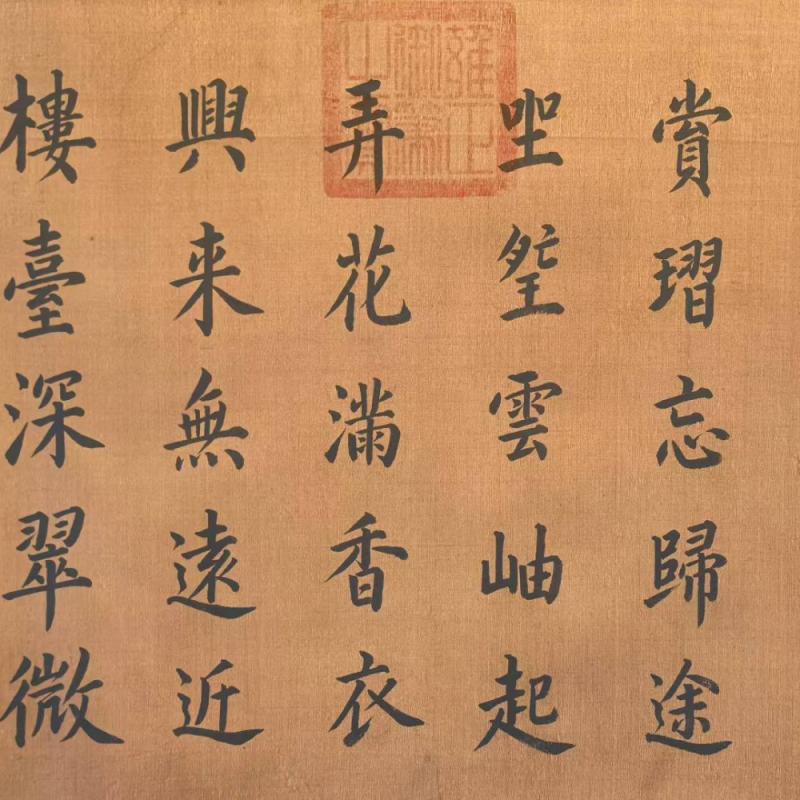 賞忘歸途
坐望雲岫起
弄花滿香衣
興来無遠近
樓臺深翠微
雍正
御筆
之寶